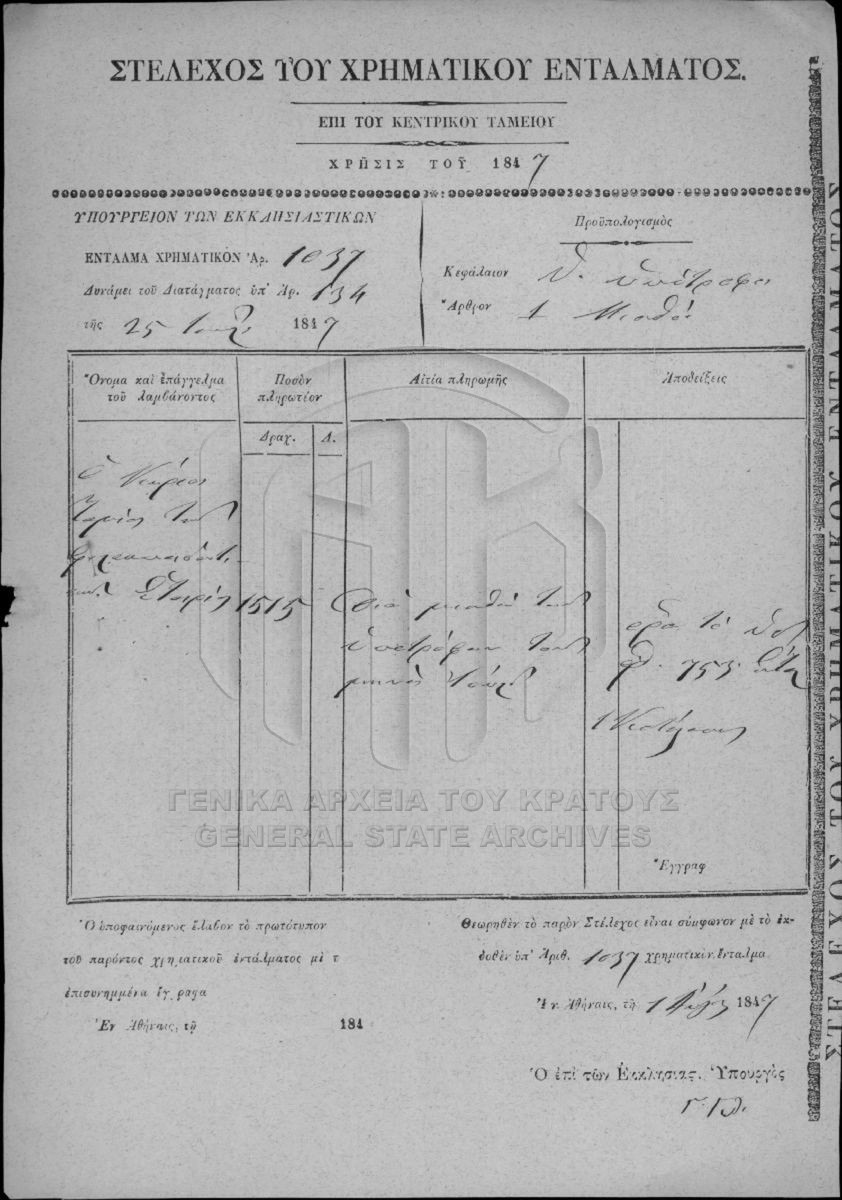 ΣΤΕΛΕΧΟΣ ΤΟΥ ΧΡΗΜΑΤΙΚΟΥ ΕΝΤΑΛΜΑΤΟΣ.
ΕΠΙ ΤΟΥ ΚΕΝΤΡΙΚΟΥ ΤΑΜΕΙΟΥ
ΧΡΗΣΙΣ ΤΟΥ 1847
ΥΠΟΥΡΓΕΙΟΝ ΤΩΝ ΕΚΚΛΗΣΙΑΣΤΙΚΩΝ
ΕΝΤΑΛΜΑ ΧΡΗΜΑΤΙΚΟΝ Ἀρ. 1037
Δυνάμει τοῦ Διατάγματος ὑπ' Ἀρ. 134
τῆς 25 1847
Προϋπολογισμὸς
Κεφάλαιον Θ. ὑπότροφοι
Ἄρθρον 1 Μισθοὶ
Ὄνομα καὶ ἐπάγγελμα
τοῦ λαμβάνοντος
Ποσὸν
πληρωτέον
Δραχ. Λ.
Αἰτία πληρωμῆς
Ἀποδείξεις
ὁ Κύριος
Ταμίας τοῦ
1515
Διὰ μισθοὺς τῶν
ὑποτρόφων τοῦ
μηνὸς
ὅρα τὸ ὑπ
753
Ἔγγραφ
ΓΕΝΙΚΑ ΑΡΧΕΙΑ ΤΟΥ ΚΡΑΤΟΥΣ
GENERAL STATE ARCHIVES
Ὁ ὑποφαινόμενος ἔλαβον τὸ πρωτότυπον
τοῦ παρόντος χρηματικοῦ ἐντάλματος μὲ τ
ἐπισυνημμένα ἔγγραφα
Ἐν Ἀθήναις, τῇ 184
Θεωρηθὲν τὸ παρὸν Στέλεχος εἶναι σύμφωνον μὲ τὸ ἐκ-
δοθὲν ὑπ' Ἀριθ. 1037 χρηματικὸν ἔνταλμα
Ἐν Ἀθήναις, τῇ 1 1847
Ὁ ἐπὶ τῶν Ἐκκλησιας. Ὑπουργὸς
ΣΤΕΛΕΧΟΣ ΤΟΥ ΧΡΗΜΑΤΙΚΟΥ ΕΝΤΑΛΜΑΤΟΣ